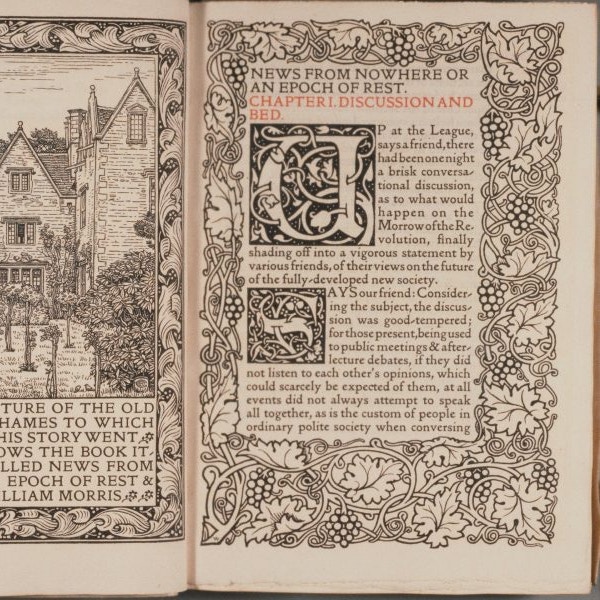 TURE OF THE OLD
HAMES TO WHICH
HIS STORY WENT,
OWS THE BOOK IT-
LLED NEWS FROM
EPOCH OF REST &
LLIAM MORRIS,
NEWS FROM NOWHERE OR
AN EPOCH OF REST.
CHAPTER I. DISCUSSION AND
BED.
UP at the League,
says a friend, there
had been one night
a brisk conversa-
tional discussion,
as to what would
happen on the
Morrow of the Re-
volution, finally
shading off into a vigorous statement by
various friends, of their views on the future
of the fully-developed new society.
SAYS our friend: Consider-
ing the subject, the discus-
sion was good-tempered;
for those present, being used
to public meetings & after-
lecture debates, if they did
not listen to each other's opinions, which
could scarcely be expected of them, at all
events did not always attempt to speak
all together, as is the custom of people in
ordinary polite society when conversing